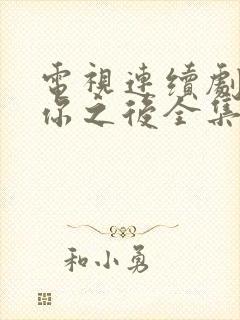 電視連續劇
你之後全集
和小勇